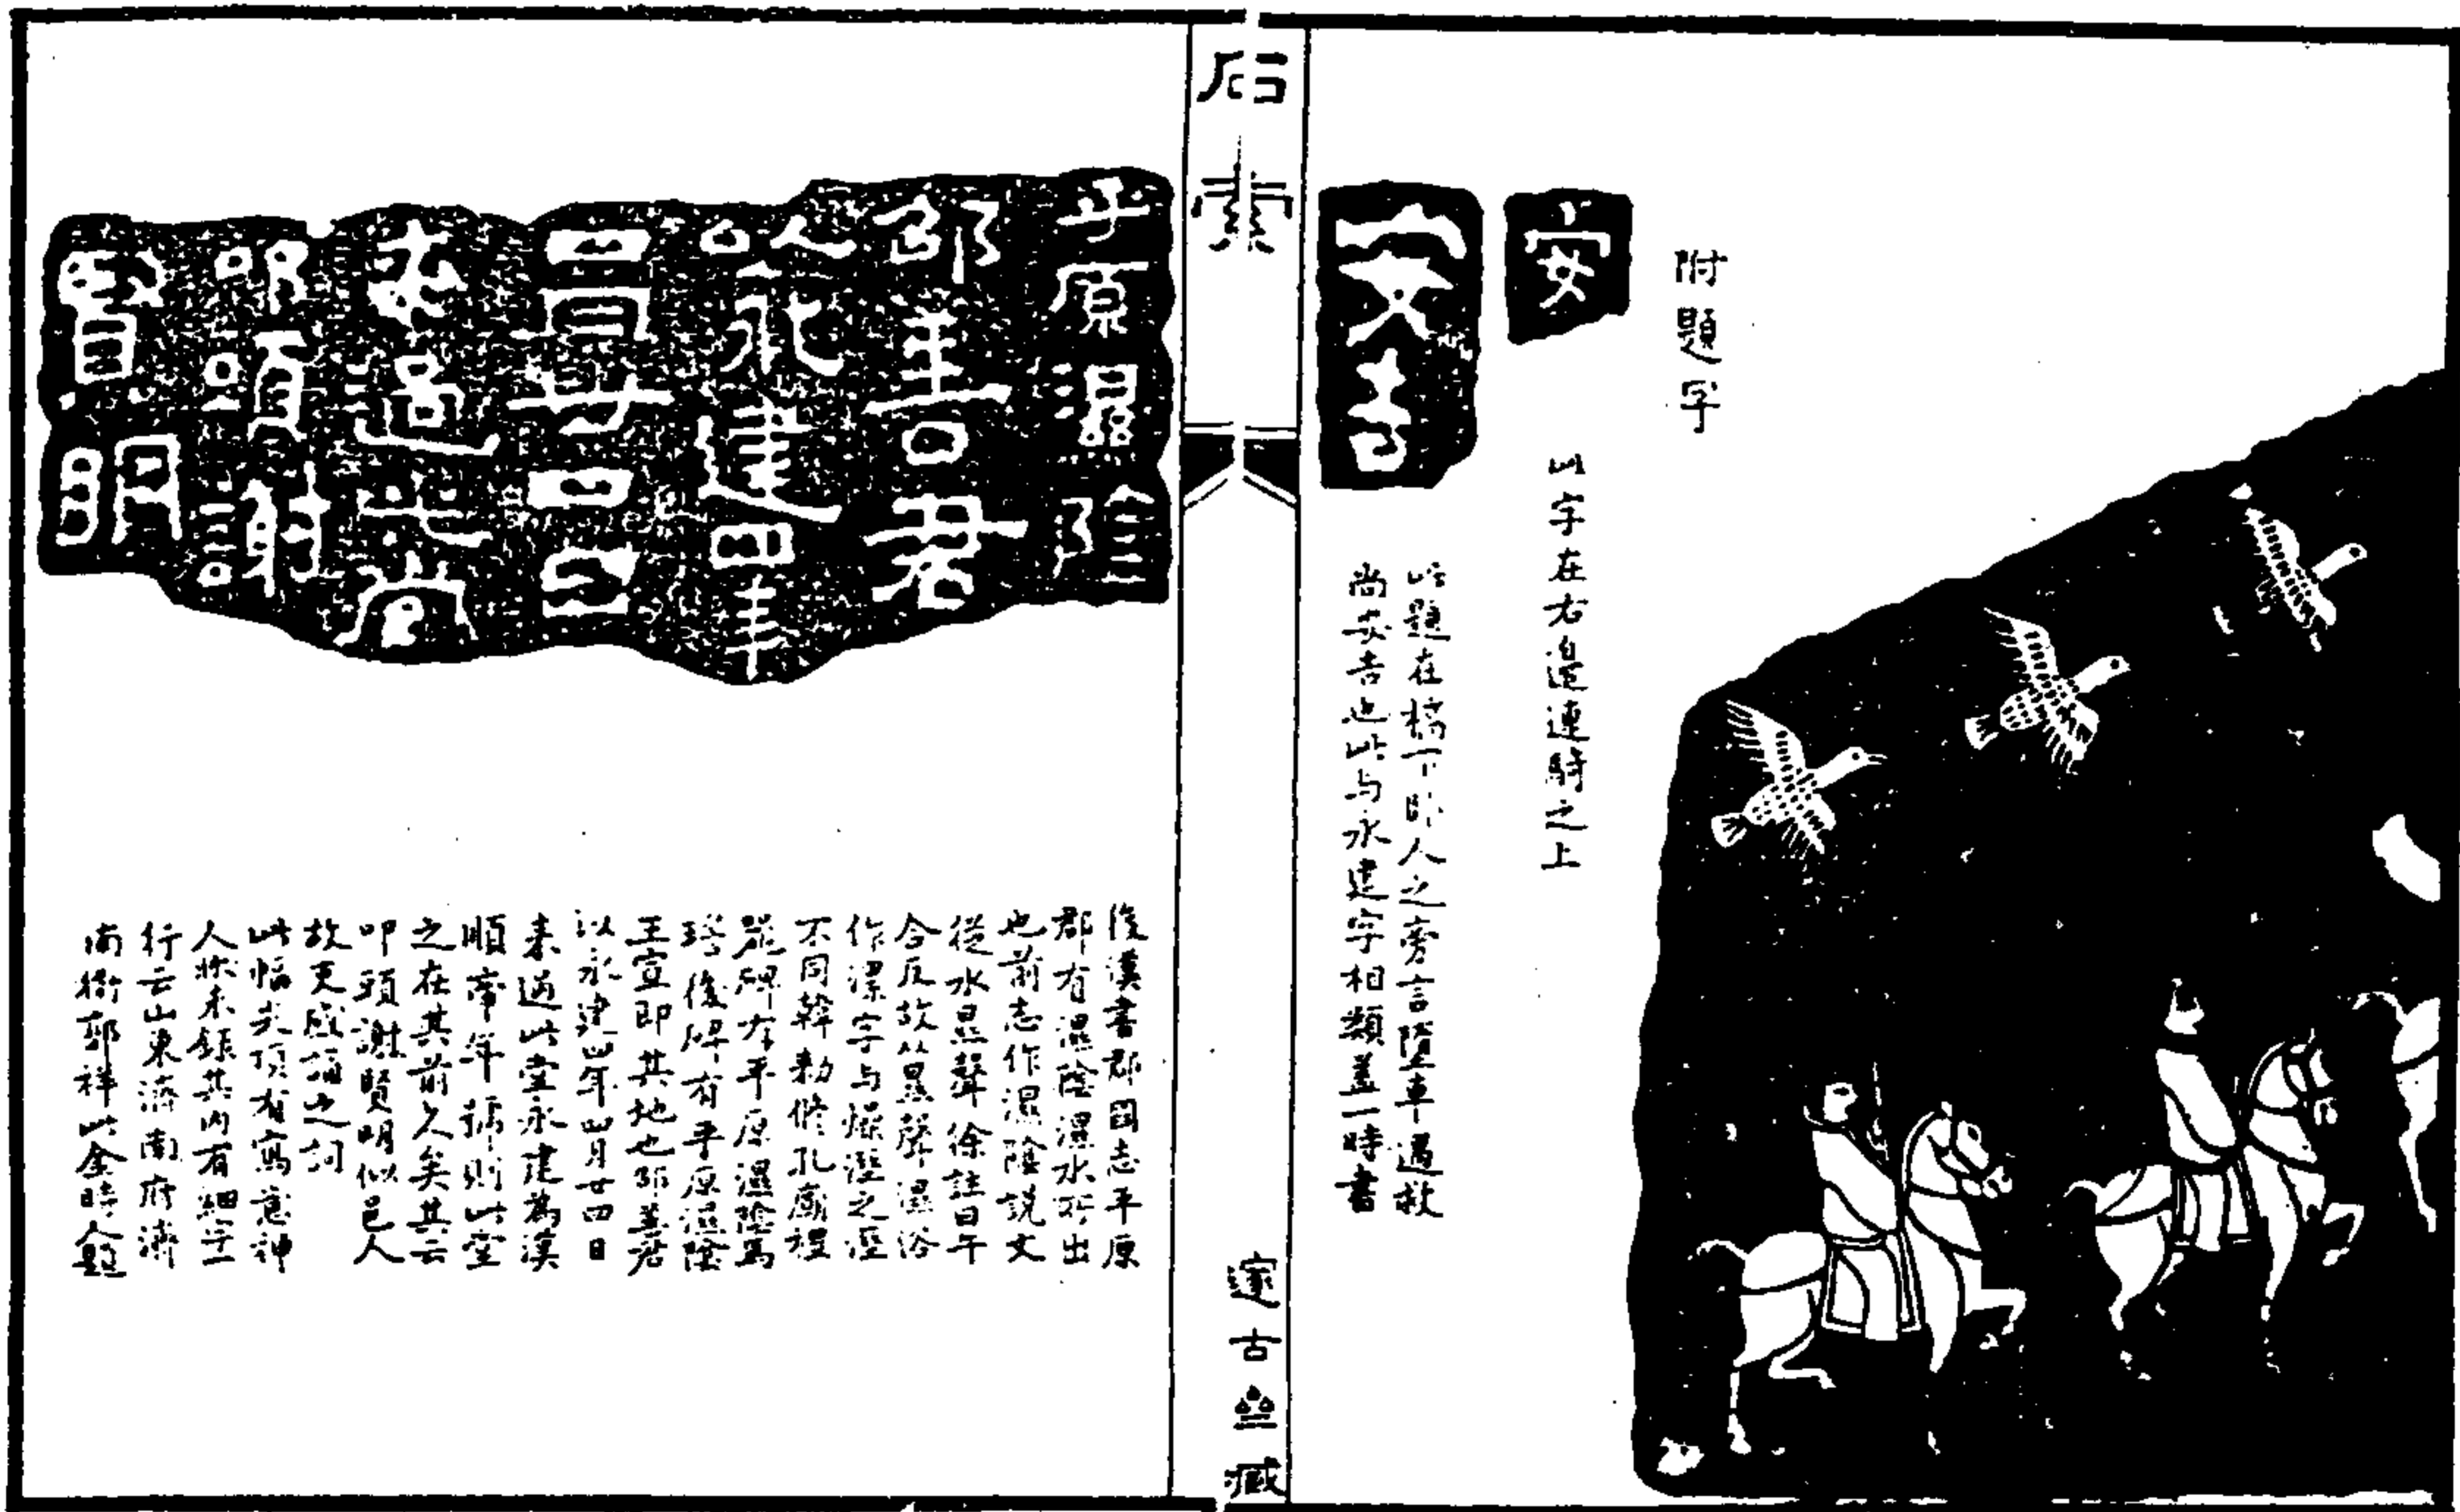 附題字
安
此字在右邊連騎之上
安吉
此題在橋下卧人之旁言墮車過救
尚安吉也此与永建字相類蓋一時書
石索
邃古𠫤臧
平原濕陰
邵善君
以永建四年
四月廿四日
來過此堂
叩頭謝
賢明
後漢書郡國志平原
郡有濕陰濕水所出
也前志作漯陰說文
從水㬎聲徐註曰午
合反故从㬎聲濕俗
作漯字与燥溼之溼
不同韓勅脩孔廟禮
器碑有平原濕陰馬
瑤後碑有平原濕陰
王宣即其地也邵善君
以永建四年四月廿四日
來過此堂永建為漢
順帝年號則此堂
之在其前久矣其云
叩頭謝賢明似邑人
故更感頌之詞
此幅尖頂有寫意神
人狀未錄其內有細字一
行云山東濟南府濟
南衛郭祥此金時人題